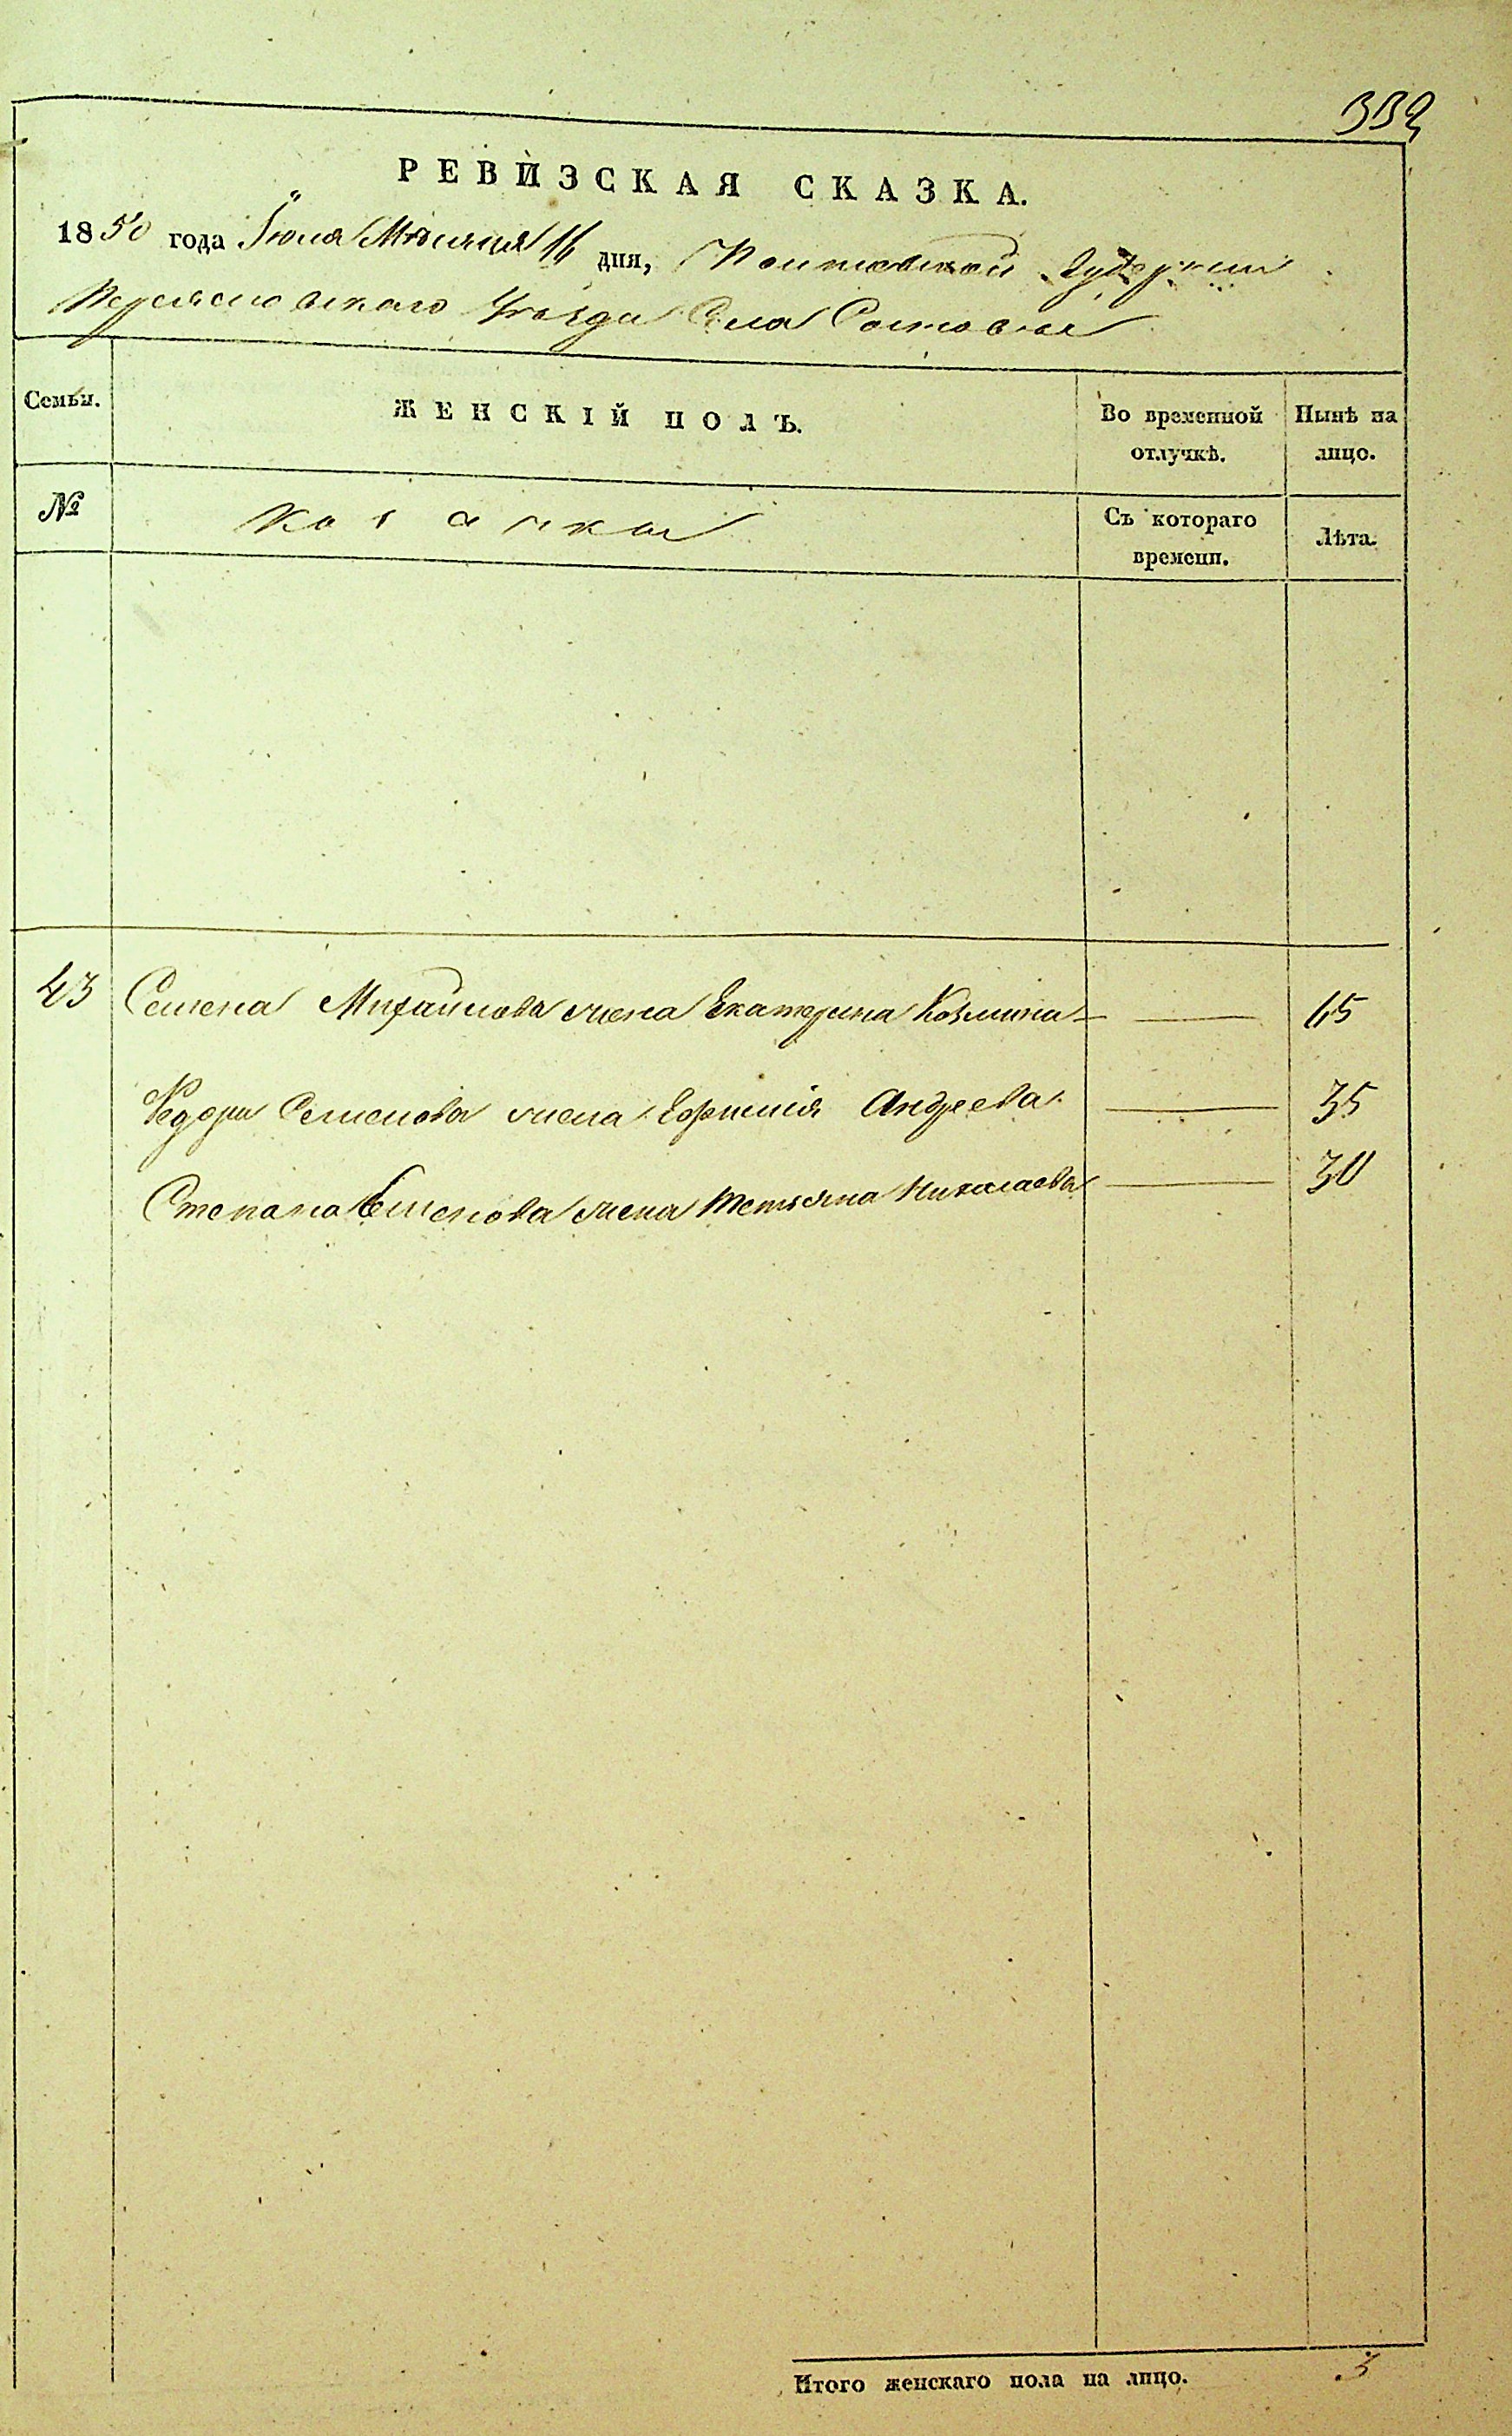 332
РЕВИЗСКАЯ СКАЗКА.
1850 года Іюля Мѣсяца 16 дня, Полтавской Губерніи
Переяславскаго Уѣзда Села
Семьи. ЖЕНСКІЙ ПОЛЪ. Во временной отлучкѣ. Нынѣ на лицо.
№ Козачки Съ котораго времени. Лѣта.
43 Семена Михайлова жена Екатерина Козмина — 65
Федора Семенова жена Евфимія Андреева — 35
Степана Семенова жена Тетьяна Николаева — 30
Итого женскаго пола на лицо. 3